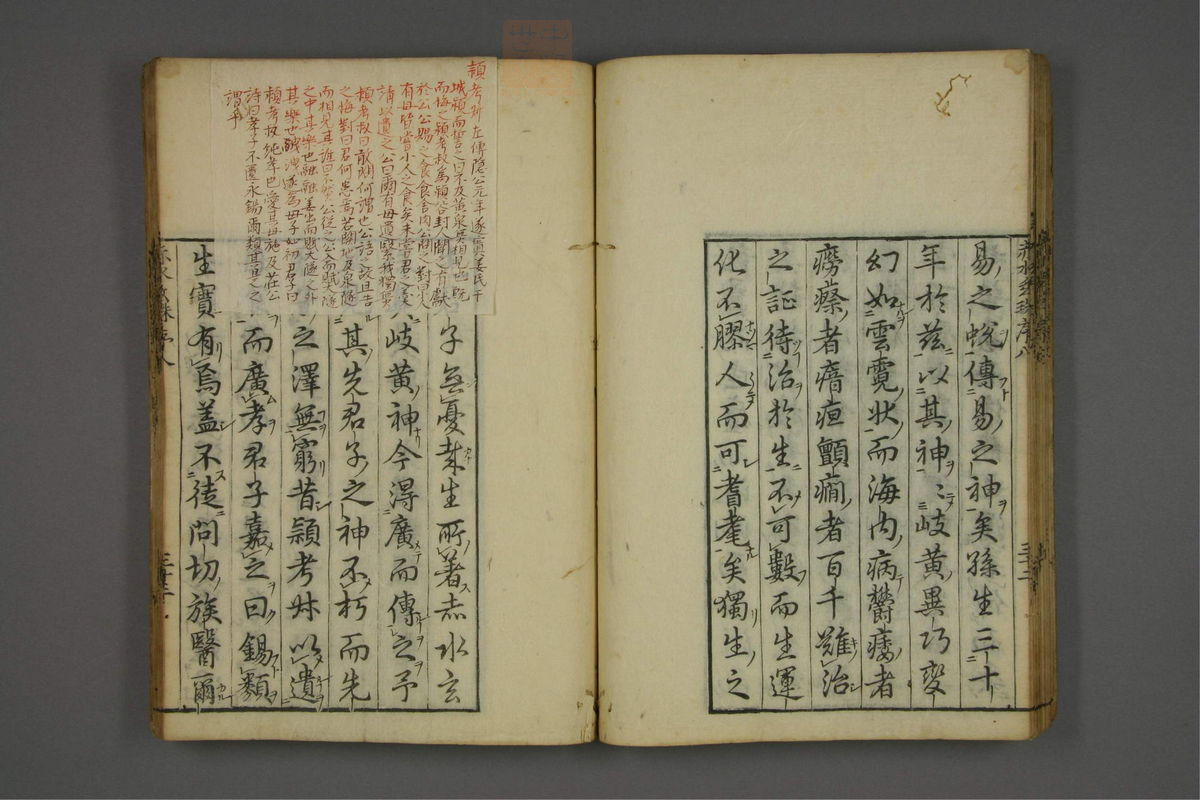 易之蛻傳易之神矣孫生三十
年於茲以其神〻岐黃異巧変
幻如雲霓狀而海内病欝痿者
癆瘵者瘖疸顫癎者百千難治
之証待治於生不可數而生運
化不膠人而可耆耄矣獨生之
子無憂桒生所著赤水玄
岐黃神今得廣而傳之予
其先君子之神不朽而先
之澤無窮昔頴考叔以遺
而廣孝君子嘉之曰錫類
生寶有焉盖不徒問切族醫爾
頴考叔左傳隠公元年遂寘姜氏于
城頴而誓之曰不及黃泉無相見也既
而悔之頴考叔為頴谷封人聞之有獻
於公公賜之食食舍肉公問之對曰小人
有母皆嘗小人之食矣未嘗君之羹
請以遺之公曰爾有母遺繄我獨無
頴考叔曰敢問何謂也公語之故且告
之悔對曰君何患焉若闕地及泉隧
而相見其誰曰不然公從之公入而賦大隧
之中其樂也融融姜出而賦大隧之外
其樂也洩洩遂為母子如初君子曰
頴考叔純孝也愛其母施及莊公
詩曰孝子不匱永錫爾類其是之
謂乎